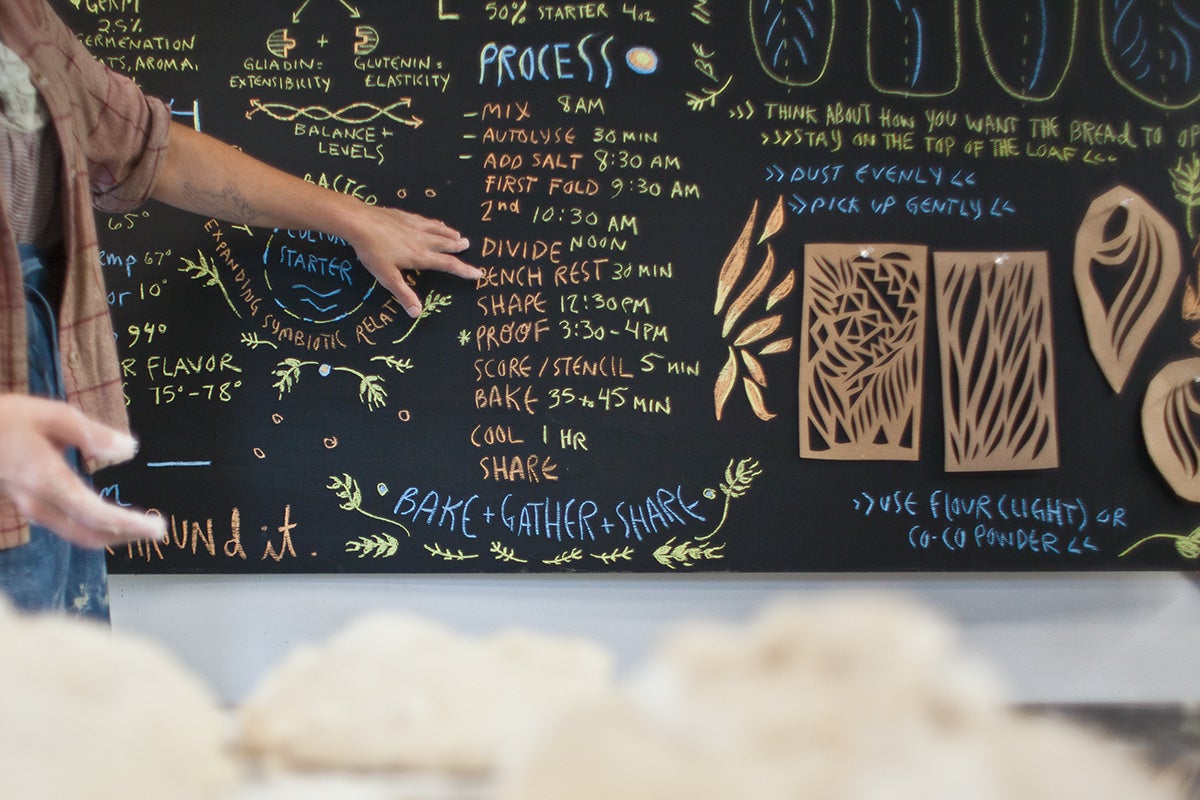 GERM
2.5%
GERMENATION
ATS, AROMA,
GLIADIN = EXTENSIBILITY
+
GLUTENIN = ELASTICITY
BALANCE +
LEVELS
BACTE
65°
EMP 67°
OR 10°
94°
R FLAVOR
S 75°-78°
STARTER
EXPANDING SYMBIOTIC RELAT
AROUND it.
50% STARTER 4oz
PROCESS
- MIX 8AM
- AUTOLYSE 30 MIN
- ADD SALT 8:30 AM
FIRST FOLD 9:30 AM
2nd 10:30 AM
DIVIDE NOON
BENCH REST 30 MIN
SHAPE 12:30PM
* PROOF 3:30-4PM
SCORE/STENCIL 5 MIN
BAKE 35 to 45 MIN
COOL 1 HR
SHARE
BAKE + GATHER + SHARE
BE IN
>>> THINK ABOUT HOW YOU WANT THE BREAD TO OP
>>>STAY ON THE TOP OF THE LOAF <<<
>> DUST EVENLY <<
>> PICK UP GENTLY <<
>>USE FLOUR (LIGHT) OR
CO-CO POWDER <<